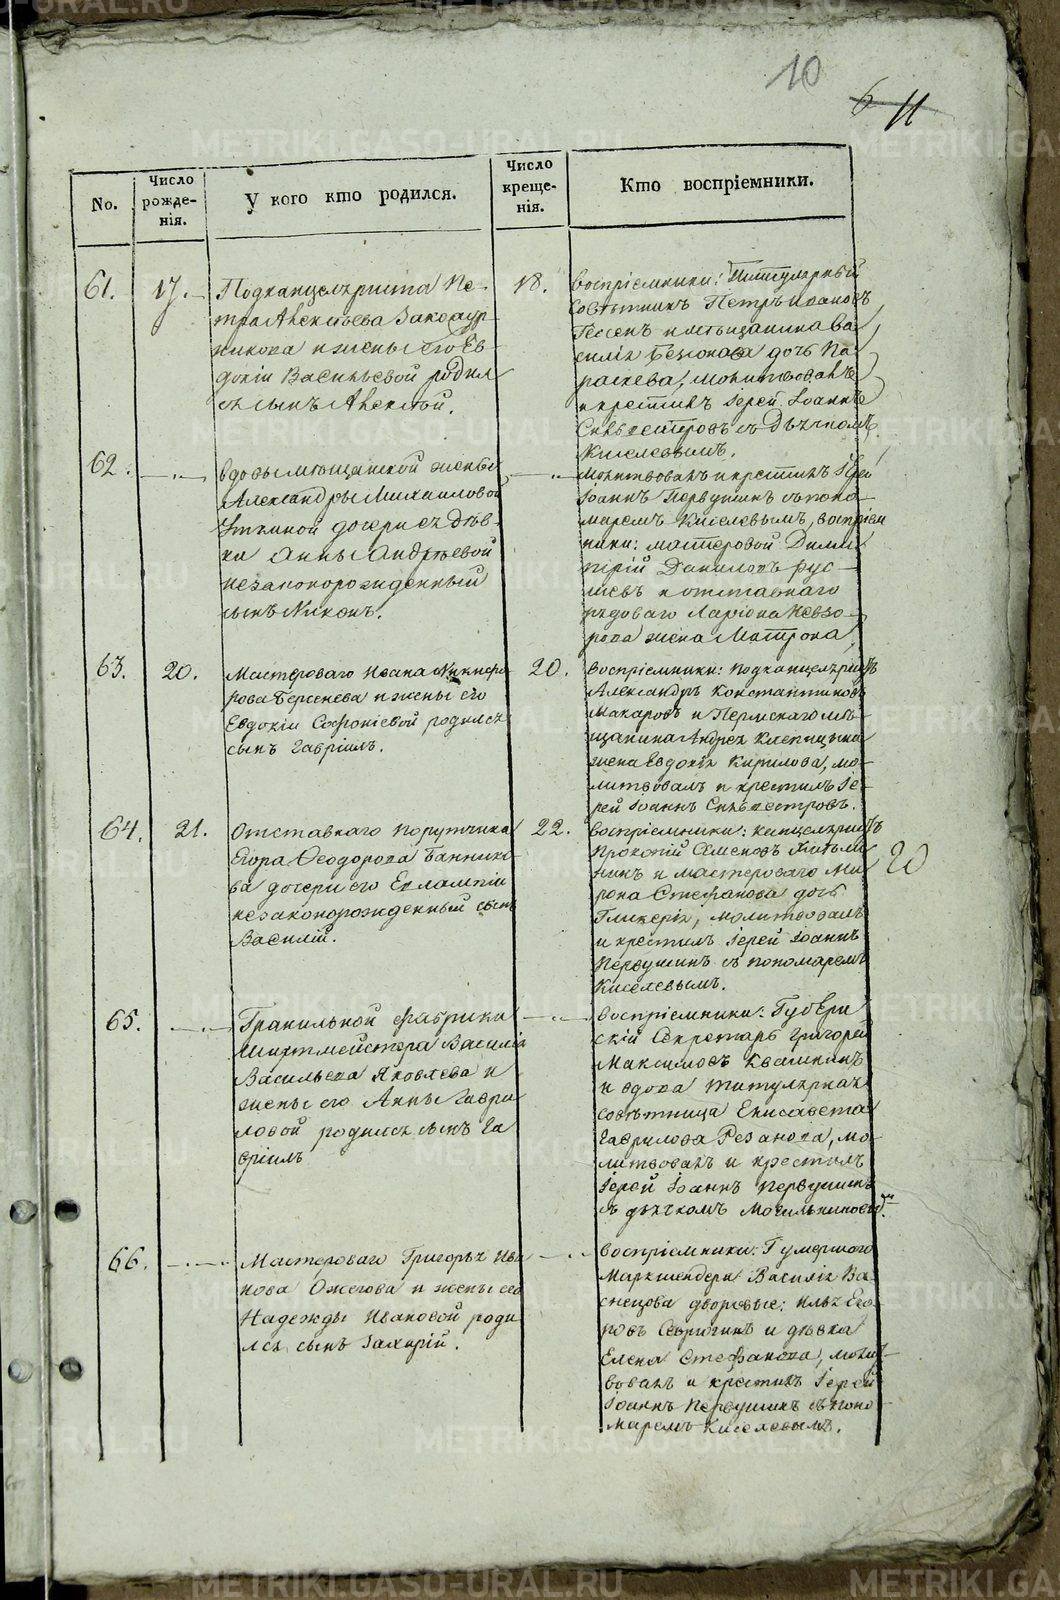 10
6 11
No.
Число рожденія.
У кого кто родился.
Число крещенія.
Кто воспріемники.
61.
17.
Подканцеляриста Пе-
тра Алексѣева
никова и жены его Ев-
докіи Васильевой родил
ся сынъ Алексѣй.
18.
воспріемники: Титулярный
Совѣтникъ Петръ Ивановъ
Гессенъ и мѣщанина Ва
силія дочь Па
раскева, молитвовалъ
и крестилъ Іерей Іоаннъ
Сильвестровъ съ Дьячкомъ
Киселевымъ.
62.
вдовы мѣщанской жены
Александры Михайловой
дочери ея Дѣв-
ки Анны Андреевой
незаконорожденный
сынъ Никонъ.
молитвовалъ и крестилъ Іерей
Іоаннъ Первушинъ съ поно-
маремъ Киселевымъ, воспріем
ники: мастеровой Дими
трій Даниловъ
и отставнаго
рядоваго Ларіона Невзо-
рова жена Матрона,
63.
20.
Мастероваго Ивана Никифо
рова Берсенева и жены его
Евдокіи Софоніевой родился
сынъ Гавріилъ.
20.
воспріемники: Подканцеляристъ
Александръ Константиновъ
Макаровъ и Пермскаго мѣ-
щанина Андрея Клепицына
жена Евдокія Кирилова, мо-
литвовалъ и крестилъ Іе-
рей Іоаннъ Сильвестровъ.
64.
21.
Отставнаго порутчика
Егора Ѳеодорова Баннико-
ва дочери его Евлампіи
незаконорожденный сынъ
Василій.
22.
воспріемники: канцеляристъ
Прокопій Семеновъ
и мастероваго Ми
рона Стефанова дочь
Гликерія, молитвовалъ
и крестилъ Іерей Іоаннъ
Первушинъ съ пономаремъ
Киселевымъ.
20
65.
Гранильной фабрики
Шихтмейстера Василія
Васильева Яковлева и
жены его Анны Гаври
ловой родился сынъ Га
вріилъ
воспріемники: Губерн
скій Секретарь Григорей
Максимовъ Квашнинъ
и вдова титулярная
совѣтница Елисавета
Гаврилова Резанова, мо-
литвовалъ и крестилъ
Іерей Іоаннъ Первушинъ
съ дьячкомъ Могильниковымъ.
66.
Мастероваго Григорья Ива
нова Ожегова и жены его
Надежды Ивановой роди
лся сынъ Захарій.
воспріемники: Г умершаго
Маркшендера Василія Ва-
снецова дворовые: Илья Его-
ровъ и дѣвка
Елена Стефанова, молит-
вовалъ и крестилъ Іерей
Іоаннъ Первушинъ съ поно
маремъ Киселевымъ.
METRIKI.GASO-URAL.RU